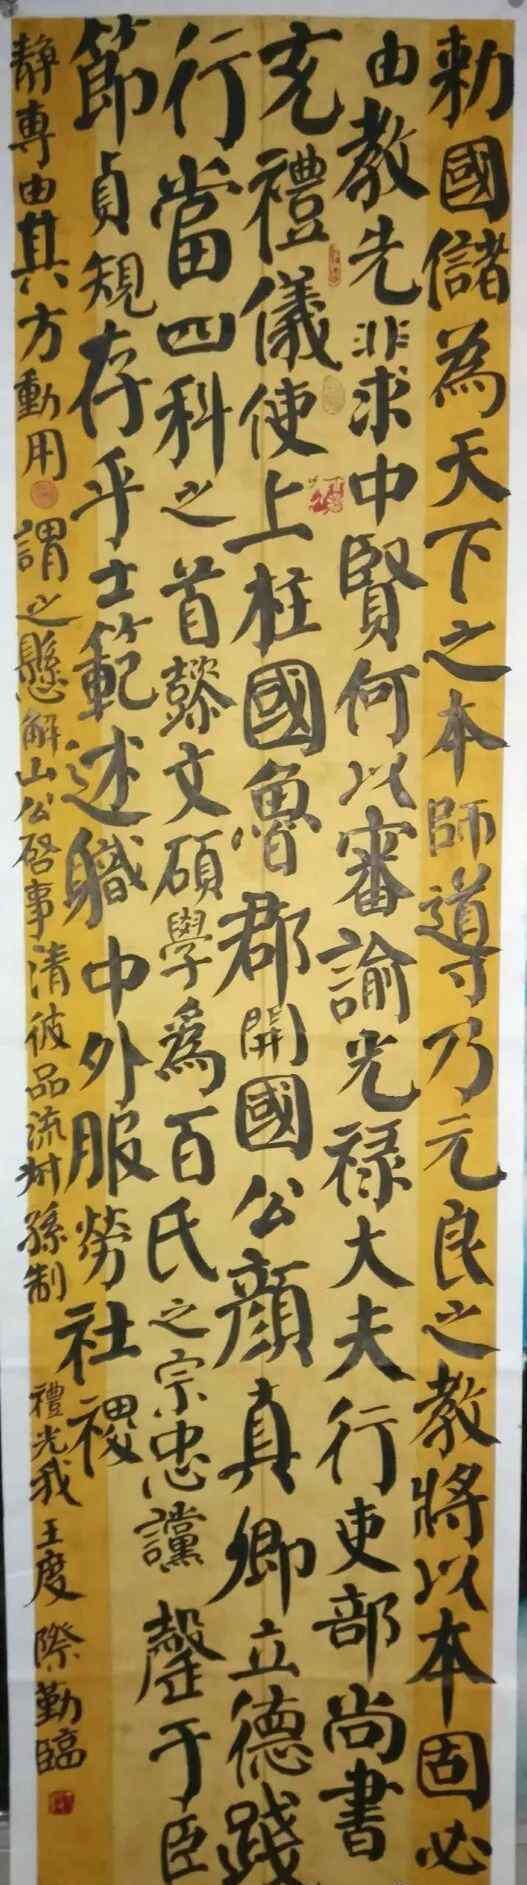 勅國儲為天下之本師導乃元良之教將以本固必
由教先非求中賢何以審諭光禄大夫行吏部尚書
充禮儀使上柱國魯郡開國公顔真卿立德踐
行當四科之首懿文碩學爲百氏之宗忠讜罄于臣
節貞規存乎士範述職中外服勞社稷
靜專由其方動用謂之懸解山公啓事清彼品流叔孫制
禮光我王度 際勤臨